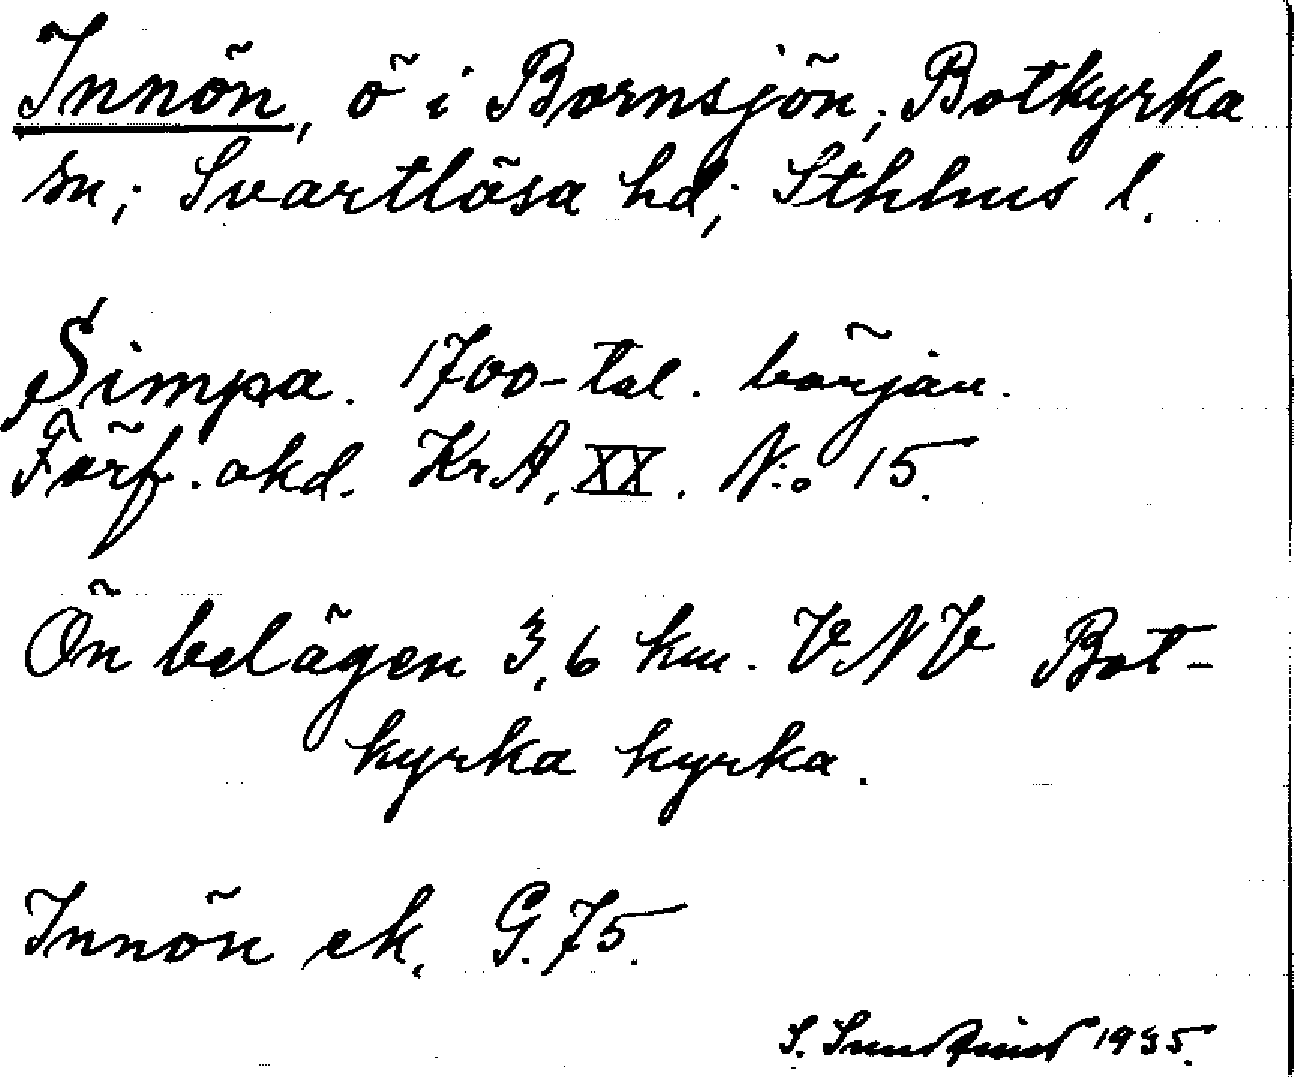 Innön, ö i Bornsjön; Botkyrka
sn; Svartlösa hd; Sthlms l.
Simpa. 1700-tal. början.
Förf. okd. KrA, XX. N:o 15.
Ön belägen 3,6 km. VNV Bot-
kyrka kyrka.
Innön ek. G. 75.
S. 1935.